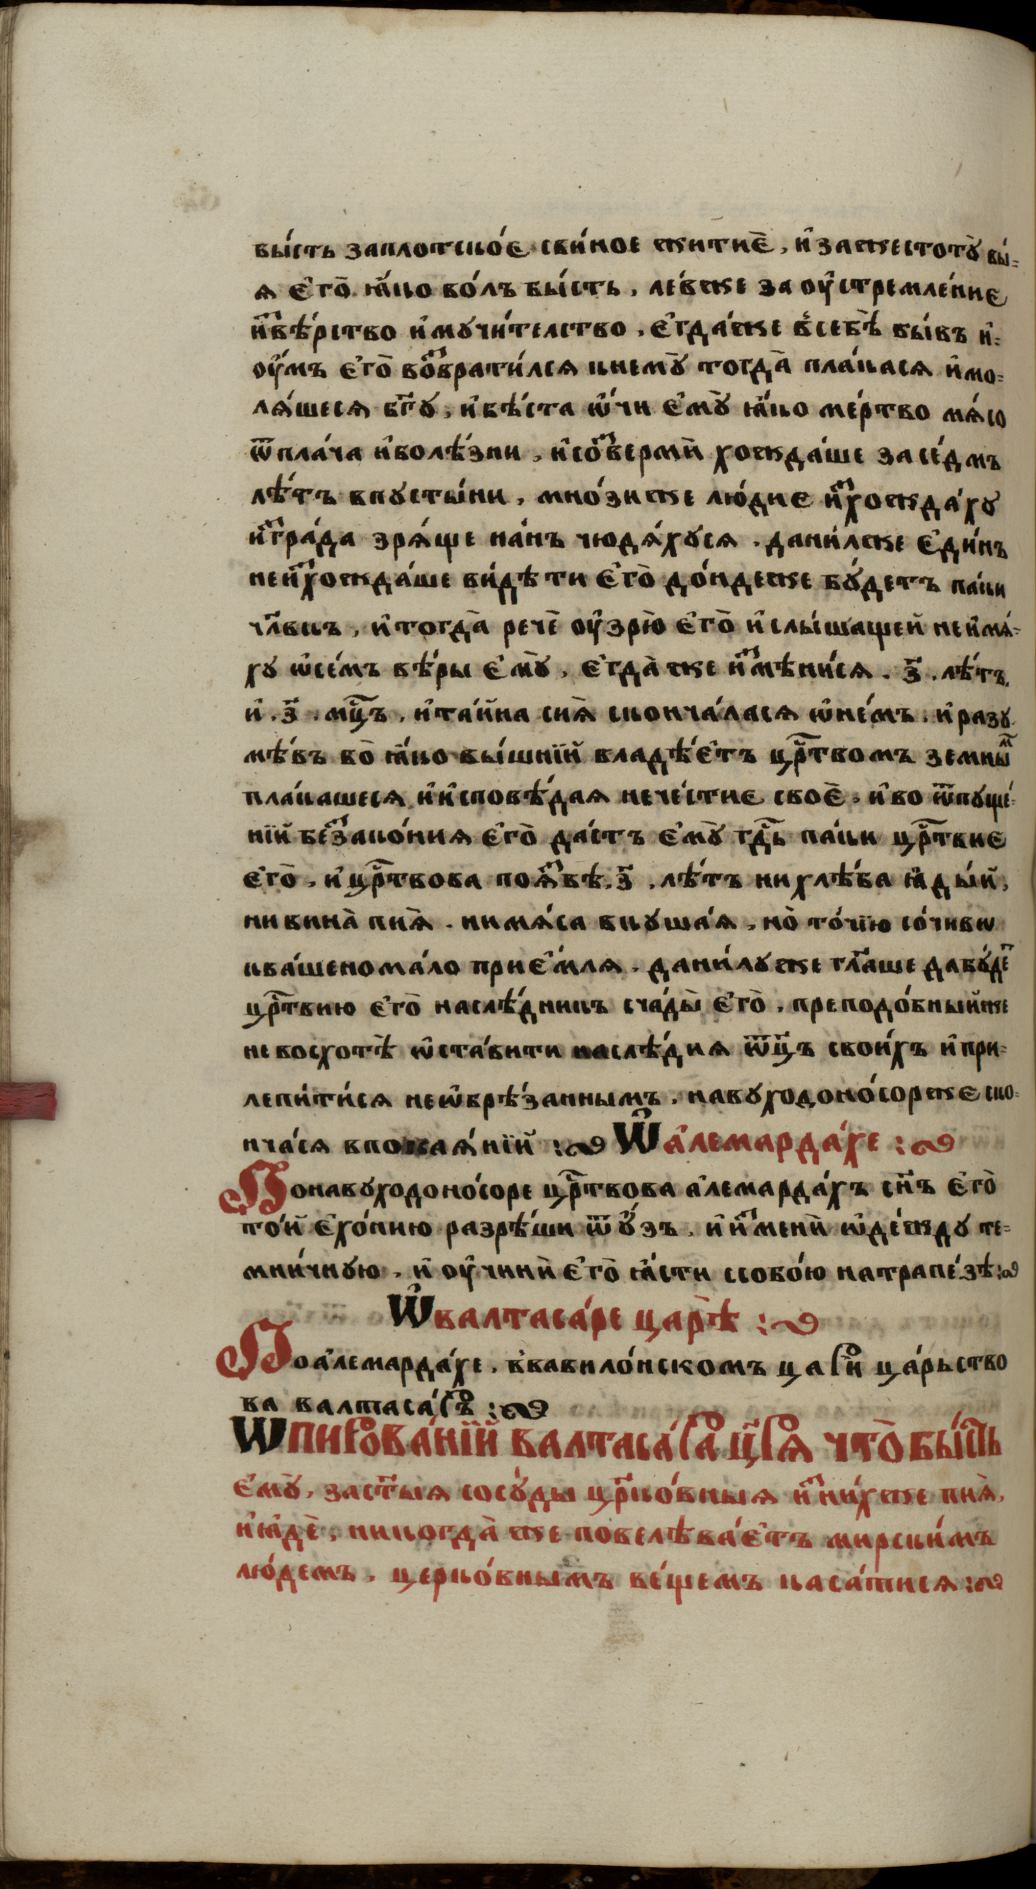 бы́сть заплотсно́є сви́ное житиѐ, и҆ зажестотꙋ̀ вы́=
ѧ є҆го̀ ꙗ҆́ко во́лъ бы́сть, ле́вже за оу҆стремле́ние
и҆ ѕвѣ́рство и҆ мꙋчи́телство, є҆гда́же в҆себѣ̀ бы́въ и҆=
оу҆́мъ є҆го̀ во́звратилсѧ кнемꙋ̀ тогда̀ пла́касѧ и҆мо=
лѧ́шесѧ бг҃ꙋ, и҆бѣ́ста ѡ҆́чи є҆мꙋ̀ ꙗ҆́ко ме́ртво мѧ́со
ѿпла́ча и҆болѣ́зни, и҆ со́звѣрми̇ хожда́ше засе́дмъ
лѣ́тъ впꙋсты́ни, мно́зиже лю́диє и҆з̾хожда́хꙋ
и҆з̾гра́да зрѧ́ще на́нь чюдѧ́хꙋсѧ. дани́лже є҆ди́нъ
неи҆схожда́ше ви́дѣти є҆го̀ до́ндеже бꙋ́детъ па́ки
чл҃вкъ, и҆тогда̀ речѐ оу҆зрю̀ є҆го̀ и҆ слы́шащей неи҆мѧ́=
хꙋ ѡ҆се́мъ вѣ́ры є҆мꙋ̀, є҆гда̀ же и҆з̾мѣни́сѧ. з҃. лѣ́тъ,
и҆. з҃. мц҃ъ, и҆та́йна сиѧ̀ сконча́ласѧ ѡ҆не́мъ. и҆ разꙋ
мѣ́въ бо̀ ꙗ҆́ко вы́шнїй владѣ́єтъ црⷭ҇твомъ земныⷨ
пла́кашесѧ и҆ и҆сповѣ́даѧ нече́стиє своѐ, и҆во ѿпꙋще́=
нїй бе́ззако́ниѧ є҆го̀ да́стъ є҆мꙋ̀ гдⷭ҇ь па́ки црⷭ҇твиє
є҆го̀, и҆ црⷭ҇твова поѧ́звѣ, з҃, лѣ́тъ нихлѣ́ба ꙗ҆ды́й,
нивина̀ пиѧ̀. нимѧ́са вкꙋша́ѧ, но̀ то́чїю со́чивѡ
ква́шеномало приє́млѧ. дани́лꙋже гл҃аше дабꙋ́деⷮ
црⷭ҇твию є҆го̀ наслѣ́дникъ сча́ды̀ є҆го̀, преподо́бныйже
невосхотѣ̀ ѡ҆ста́вити наслѣ́диѧ ѿц҃ъ свои́хъ и҆ при=
лепи́ти́сѧ неѡ҆брѣ́заннымъ. навꙋходоно́сорже ско=
нча́сѧ впокаѧ́нїй: Ѡ҆ а҆лемарда́хе:
Понавꙋходоно́соре црⷭ҇твова а҆лемарда́хъ сн҃ъ є҆го̀
то́й є҆хо́нию разрѣ́ши ѿ ᲂу҆́зъ, и҆ и҆з̾мени̇ ѡ҆де́ждꙋ те=
мни́чнꙋю, и҆ оу҆чини̇ є҆го̀ ꙗ҆́сти ссобо́ю натрапе́зѣ:
Ѡ҆ валтаса́ре царѣ̀:
Поа҆лемарда́хе, в҆вавило́нскомъ цаⷬ҇и̇ ца́рьство
ва валтаса́ръ:
Ѡ҆ пирова́нїй валтаса́ра цр҃ѧ что̀ бы́сть
є҆мꙋ̀, заст҃ыѧ сосꙋ́ды црⷦ҇о́вныѧ и҆з̾ни́хже пиѧ̀,
и҆ꙗ҆дѐ, никогда̀ же повелѣва́єтъ мирски́мъ
лю́демъ, церко́внымъ ве́щемъ каса́тисѧ: